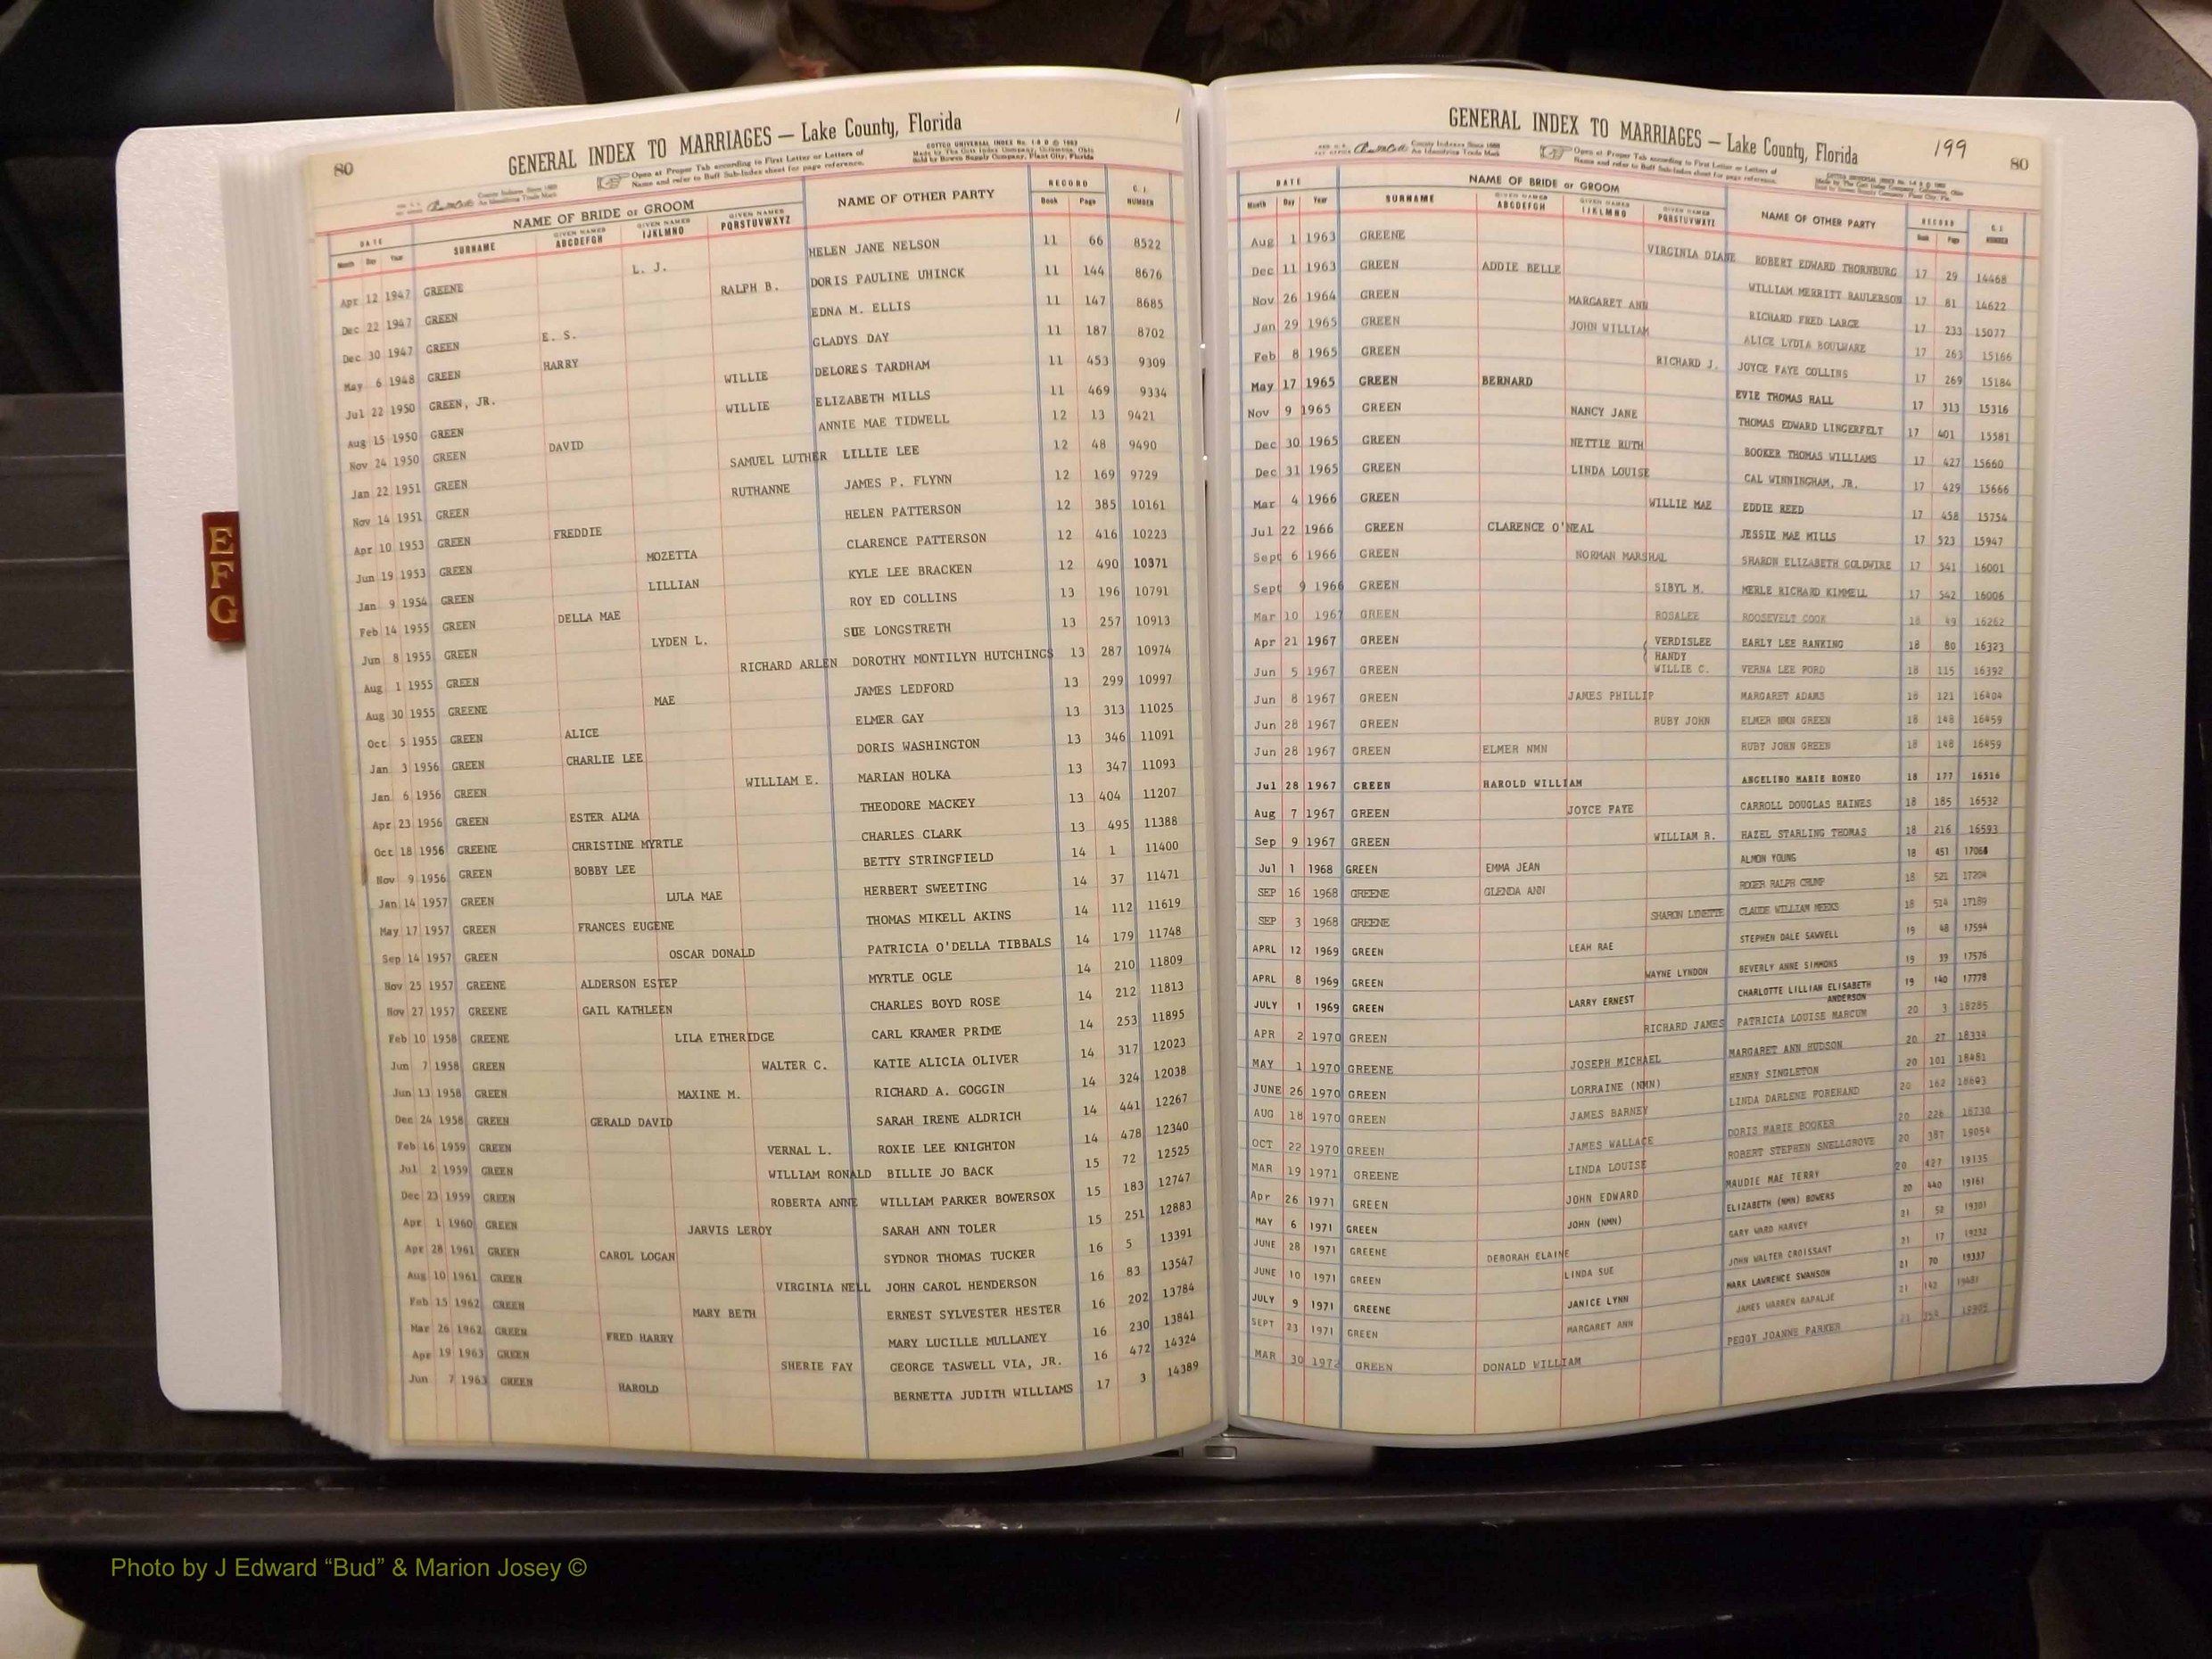 80
GENERAL INDEX TO MARRIAGES — Lake County, Florida
Open at Proper Tab according to First Letter or Letters of
Name and refer to Buff Sub-Index sheet for page reference.
COTTCO UNIVERSAL INDEX
DATE NAME OF BRIDE or GROOM NAME OF OTHER PARTY RECORD C. I.
Month Day Year SURNAME GIVEN NAMES ABCDEFGH GIVEN NAMES IJKLMNO GIVEN NAMES PQRSTUVWXYZ Book Page NUMBER
Apr 12 1947 GREENE L. J. HELEN JANE NELSON 11 66 8522
Dec 22 1947 GREEN RALPH B. DORIS PAULINE UHINCK 11 144 8676
Dec 30 1947 GREEN E. S. EDNA M. ELLIS 11 147 8685
May 6 1948 GREEN HARRY GLADYS DAY 11 187 8702
Jul 22 1950 GREEN, JR. WILLIE DELORES TARDHAM 11 453 9309
Aug 15 1950 GREEN WILLIE ELIZABETH MILLS 11 469 9334
Nov 24 1950 GREEN DAVID ANNIE MAE TIDWELL 12 13 9421
Jan 22 1951 GREEN SAMUEL LUTHER LILLIE LEE 12 48 9490
Nov 14 1951 GREEN RUTHANNE JAMES P. FLYNN 12 169 9729
Apr 10 1953 GREEN FREDDIE HELEN PATTERSON 12 385 10161
Jun 19 1953 GREEN MOZETTA CLARENCE PATTERSON 12 416 10223
Jan 9 1954 GREEN LILLIAN KYLE LEE BRACKEN 12 490 10371
Feb 14 1955 GREEN DELLA MAE ROY ED COLLINS 13 196 10791
Jun 8 1955 GREEN LYDEN L. SUE LONGSTRETH 13 257 10913
Aug 1 1955 GREEN RICHARD ARLEN DOROTHY MONTILYN HUTCHINGS 13 287 10974
Aug 30 1955 GREENE MAE JAMES LEDFORD 13 299 10997
Oct 5 1955 GREEN ALICE ELMER GAY 13 313 11025
Jan 3 1956 GREEN CHARLIE LEE DORIS WASHINGTON 13 346 11091
Jan 6 1956 GREEN WILLIAM E. MARIAN HOLKA 13 347 11093
Apr 23 1956 GREEN ESTER ALMA THEODORE MACKEY 13 404 11207
Oct 18 1956 GREENE CHRISTINE MYRTLE CHARLES CLARK 13 495 11388
Nov 9 1956 GREEN BOBBY LEE BETTY STRINGFIELD 14 1 11400
Jan 14 1957 GREEN LULA MAE HERBERT SWEETING 14 37 11471
May 17 1957 GREEN FRANCES EUGENE THOMAS MIKELL AKINS 14 112 11619
Sep 14 1957 GREEN OSCAR DONALD PATRICIA O'DELLA TIBBALS 14 179 11748
Nov 25 1957 GREENE ALDERSON ESTEP MYRTLE OGLE 14 210 11809
Nov 27 1957 GREENE GAIL KATHLEEN CHARLES BOYD ROSE 14 212 11813
Feb 10 1958 GREENE LILA ETHERIDGE CARL KRAMER PRIME 14 253 11895
Jun 7 1958 GREEN WALTER C. KATIE ALICIA OLIVER 14 317 12023
Jun 13 1958 GREEN MAXINE M. RICHARD A. GOGGIN 14 324 12038
Dec 24 1958 GREEN GERALD DAVID SARAH IRENE ALDRICH 14 441 12267
Feb 16 1959 GREEN VERNAL L. ROXIE LEE KNIGHTON 14 478 12340
Jul 2 1959 GREEN WILLIAM RONALD BILLIE JO BACK 15 72 12525
Dec 23 1959 GREEN ROBERTA ANNE WILLIAM PARKER BOWERSOX 15 183 12747
Apr 1 1960 GREEN JARVIS LEROY SARAH ANN TOLER 15 251 12883
Apr 28 1961 GREEN CAROL LOGAN SYDNOR THOMAS TUCKER 16 5 13391
Aug 10 1961 GREEN VIRGINIA NELL JOHN CAROL HENDERSON 16 83 13547
Feb 15 1962 GREEN MARY BETH ERNEST SYLVESTER HESTER 16 202 13784
Mar 26 1962 GREEN FRED HARRY MARY LUCILLE MULLANEY 16 230 13841
Apr 19 1963 GREEN SHERIE FAY GEORGE TASWELL VIA, JR. 16 472 14324
Jun 7 1963 GREEN HAROLD BERNETTA JUDITH WILLIAMS 17 3 14389
GENERAL INDEX TO MARRIAGES — Lake County, Florida
199 80
Open at Proper Tab according to First Letter or Letters of
Name and refer to Buff Sub-Index sheet for page reference.
DATE NAME OF BRIDE or GROOM NAME OF OTHER PARTY RECORD C. I.
Month Day Year SURNAME GIVEN NAMES ABCDEFGH GIVEN NAMES IJKLMNO GIVEN NAMES PQRSTUVWXYZ Book Page NUMBER
Aug 1 1963 GREENE VIRGINIA DIANE ROBERT EDWARD THORNBURG 17 29 14468
Dec 11 1963 GREEN ADDIE BELLE WILLIAM MERRITT RAULERSON 17 81 14622
Nov 26 1964 GREEN MARGARET ANN RICHARD FRED LARGE 17 233 15077
Jan 29 1965 GREEN JOHN WILLIAM ALICE LYDIA BOULWARE 17 263 15166
Feb 8 1965 GREEN RICHARD J. JOYCE FAYE COLLINS 17 269 15184
May 17 1965 GREEN BERNARD EVIE THOMAS HALL 17 313 15316
Nov 9 1965 GREEN NANCY JANE THOMAS EDWARD LINGERFELT 17 401 15581
Dec 30 1965 GREEN NETTIE RUTH BOOKER THOMAS WILLIAMS 17 427 15660
Dec 31 1965 GREEN LINDA LOUISE CAL WINNINGHAM, JR. 17 429 15666
Mar 4 1966 GREEN WILLIE MAE EDDIE REED 17 458 15754
Jul 22 1966 GREEN CLARENCE O'NEAL JESSIE MAE MILLS 17 523 15947
Sept 6 1966 GREEN NORMAN MARSHAL SHARON ELIZABETH GOLDWIRE 17 541 16001
Sept 9 1966 GREEN SIBYL M. MERLE RICHARD KIMMELL 17 542 16006
Mar 10 1967 GREEN ROSALEE ROOSEVELT COOK 18 49 16262
Apr 21 1967 GREEN VERDISLEE HANDY EARLY LEE RANKING 18 80 16323
Jun 5 1967 GREEN WILLIE C. VERNA LEE FORD 18 115 16392
Jun 8 1967 GREEN JAMES PHILLIP MARGARET ADAMS 18 121 16404
Jun 28 1967 GREEN RUBY JOHN ELMER NMN GREEN 18 148 16459
Jun 28 1967 GREEN ELMER NMN RUBY JOHN GREEN 18 148 16459
Jul 28 1967 GREEN HAROLD WILLIAM ANGELINO MARIE ROMEO 18 177 16516
Aug 7 1967 GREEN JOYCE FAYE CARROLL DOUGLAS HAINES 18 185 16532
Sep 9 1967 GREEN WILLIAM R. HAZEL STARLING THOMAS 18 216 16593
Jul 1 1968 GREEN EMMA JEAN ALMON YOUNG 18 451 17068
SEP 16 1968 GREENE GLENDA ANN ROGER RALPH CRUMP 18 521 17204
SEP 3 1968 GREENE SHARON LYNETTE CLAUDE WILLIAM MEEKS 18 514 17189
APRL 12 1969 GREEN LEAH RAE STEPHEN DALE SAWVELL 19 48 17594
APRL 8 1969 GREEN WAYNE LYNDON BEVERLY ANNE SIMMONS 19 39 17576
JULY 1 1969 GREEN LARRY ERNEST CHARLOTTE LILLIAN ELISABETH ANDERSON 19 140 17778
APR 2 1970 GREEN RICHARD JAMES PATRICIA LOUISE MARCUM 20 3 18285
MAY 1 1970 GREENE JOSEPH MICHAEL MARGARET ANN HUDSON 20 27 18334
JUNE 26 1970 GREEN LORRAINE (NMN) HENRY SINGLETON 20 101 18481
AUG 18 1970 GREEN JAMES BARNEY LINDA DARLENE FOREHAND 20 162 18603
OCT 22 1970 GREEN JAMES WALLACE DORIS MARIE BOOKER 20 226 18730
MAR 19 1971 GREENE LINDA LOUISE ROBERT STEPHEN SNELLGROVE 20 387 19054
Apr 26 1971 GREEN JOHN EDWARD MAUDIE MAE TERRY 20 427 19135
MAY 6 1971 GREEN JOHN (NMN) ELIZABETH (NMN) BOWERS 20 440 19161
JUNE 28 1971 GREENE DEBORAH ELAINE GARY WARD HARVEY 21 52 19301
JUNE 10 1971 GREEN LINDA SUE JOHN WALTER CROISSANT 21 17 19232
JULY 9 1971 GREENE JANICE LYNN MARK LAWRENCE SWANSON 21 70 19337
SEPT 23 1971 GREEN MARGARET ANN JAMES WARREN RAPALJE 21 142 19481
MAR 30 1972 GREEN DONALD WILLIAM PEGGY JOANNE PARKER
E
F
G
Photo by J Edward “Bud” & Marion Josey ©